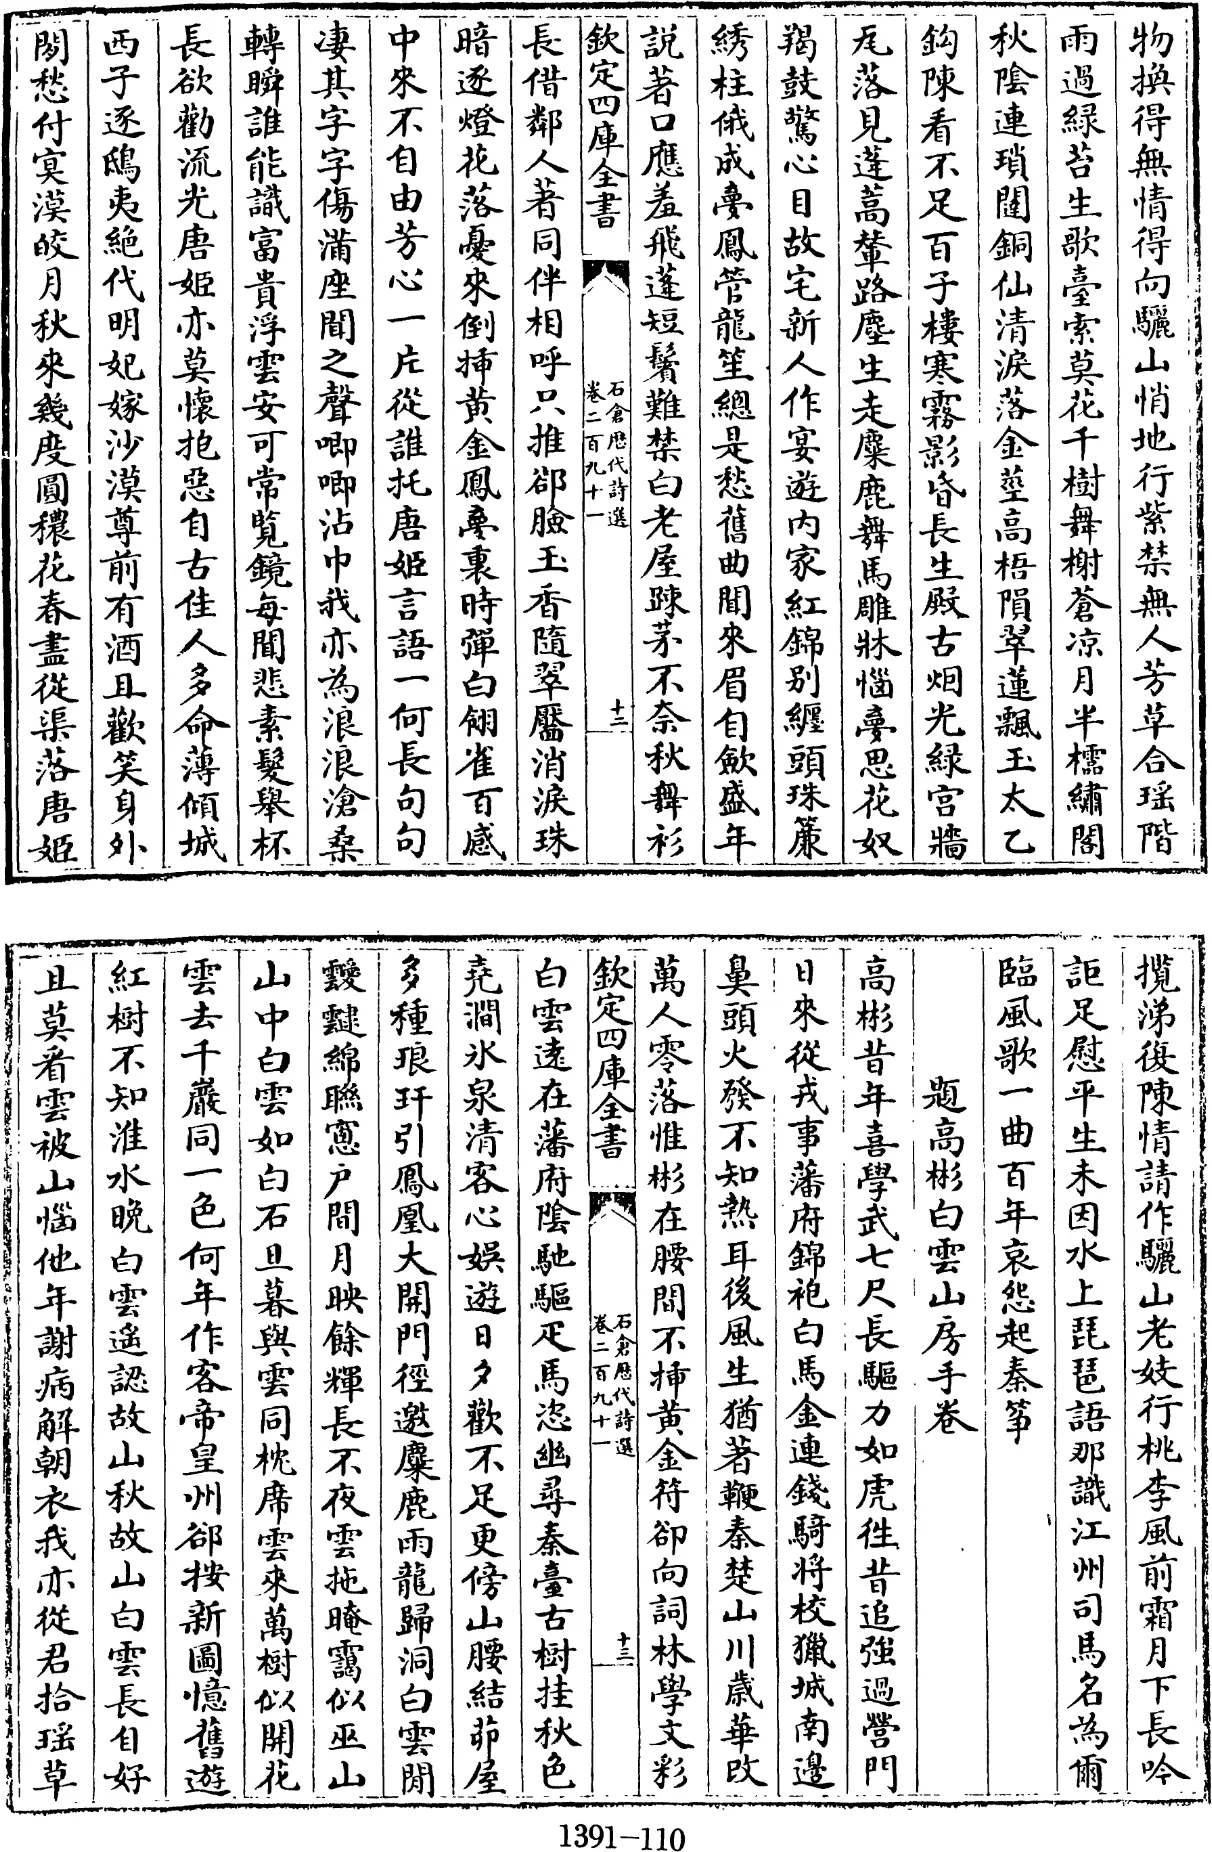 物換得無情得向驪山悄地行紫禁無人芳草合瑶階
雨過緑苔生歌臺索莫花千樹舞榭蒼凉月半櫺繡閣
秋陰連瑣闥銅仙清淚落金莖高梧隕翠蓮飄玉太乙
鈎陳看不足百子樓寒霧影昏長生殿古烟光緑宫牆
尾落見蓬蒿輦路塵生走麋鹿舞馬雕牀惱夢思花奴
羯鼓驚心目故宅新人作宴遊内家紅錦别纏頭珠簾
綉柱俄成夢鳳管龍笙總是愁舊曲聞來眉自歛盛年
説著口應羞飛蓬短鬢難禁白老屋踈茅不奈秋舞衫
欽定四庫全書
石倉歴代詩選
卷二百九十一
十二
長借鄰人著同伴相呼只推郤臉玉香隨翠靨消淚珠
暗逐燈花落憂來倒揷黄金鳳夢裏時彈白翎雀百感
中來不自由芳心一片從誰托唐姬言語一何長句句
凄其字字傷滿座聞之聲唧唧沾巾我亦為浪浪滄桑
轉瞬誰能識富貴浮雲安可常覧鏡每聞悲素髮舉杯
長欲勸流光唐姬亦莫懷抱惡自古佳人多命薄傾城
西子逐鴟夷絶代明妃嫁沙漠尊前有酒且歡笑身外
閒愁付寞漠皎月秋來幾度圓穠花春盡從渠落唐姬
攬涕復陳情請作驪山老妓行桃李風前霜月下長吟
詎足慰平生未因水上琵琶語那識江州司馬名為爾
臨風歌一曲百年哀怨起秦筝
題高彬白雲山房手卷
高彬昔年喜學武七尺長驅力如虎徃昔追強過營門
日來從戎事藩府錦袍白馬金連錢騎將校獵城南邊
鼻頭火發不知熱耳後風生猶著鞭秦楚山川歳華改
萬人零落惟彬在腰間不揷黄金符卻向詞林學文彩
欽定四庫全書
石倉歴代詩選
卷二百九十一
十三
白雲遠在藩府陰馳驅疋馬恣幽尋秦臺古樹挂秋色
堯澗氷泉清客心娱遊日夕歡不足更傍山腰結茆屋
多種琅玕引鳳凰大開門徑邀麋鹿雨龍歸洞白雲閒
靉靆綿聯窓户間月映餘輝長不夜雲拖晻靄似巫山
山中白雲如白石旦暮與雲同枕席雲來萬樹似開花
雲去千巖同一色何年作客帝皇州郤按新圖憶舊遊
紅樹不知淮水晩白雲遥認故山秋故山白雲長自好
且莫看雲被山惱他年謝病解朝衣我亦從君拾瑶草
1391-110